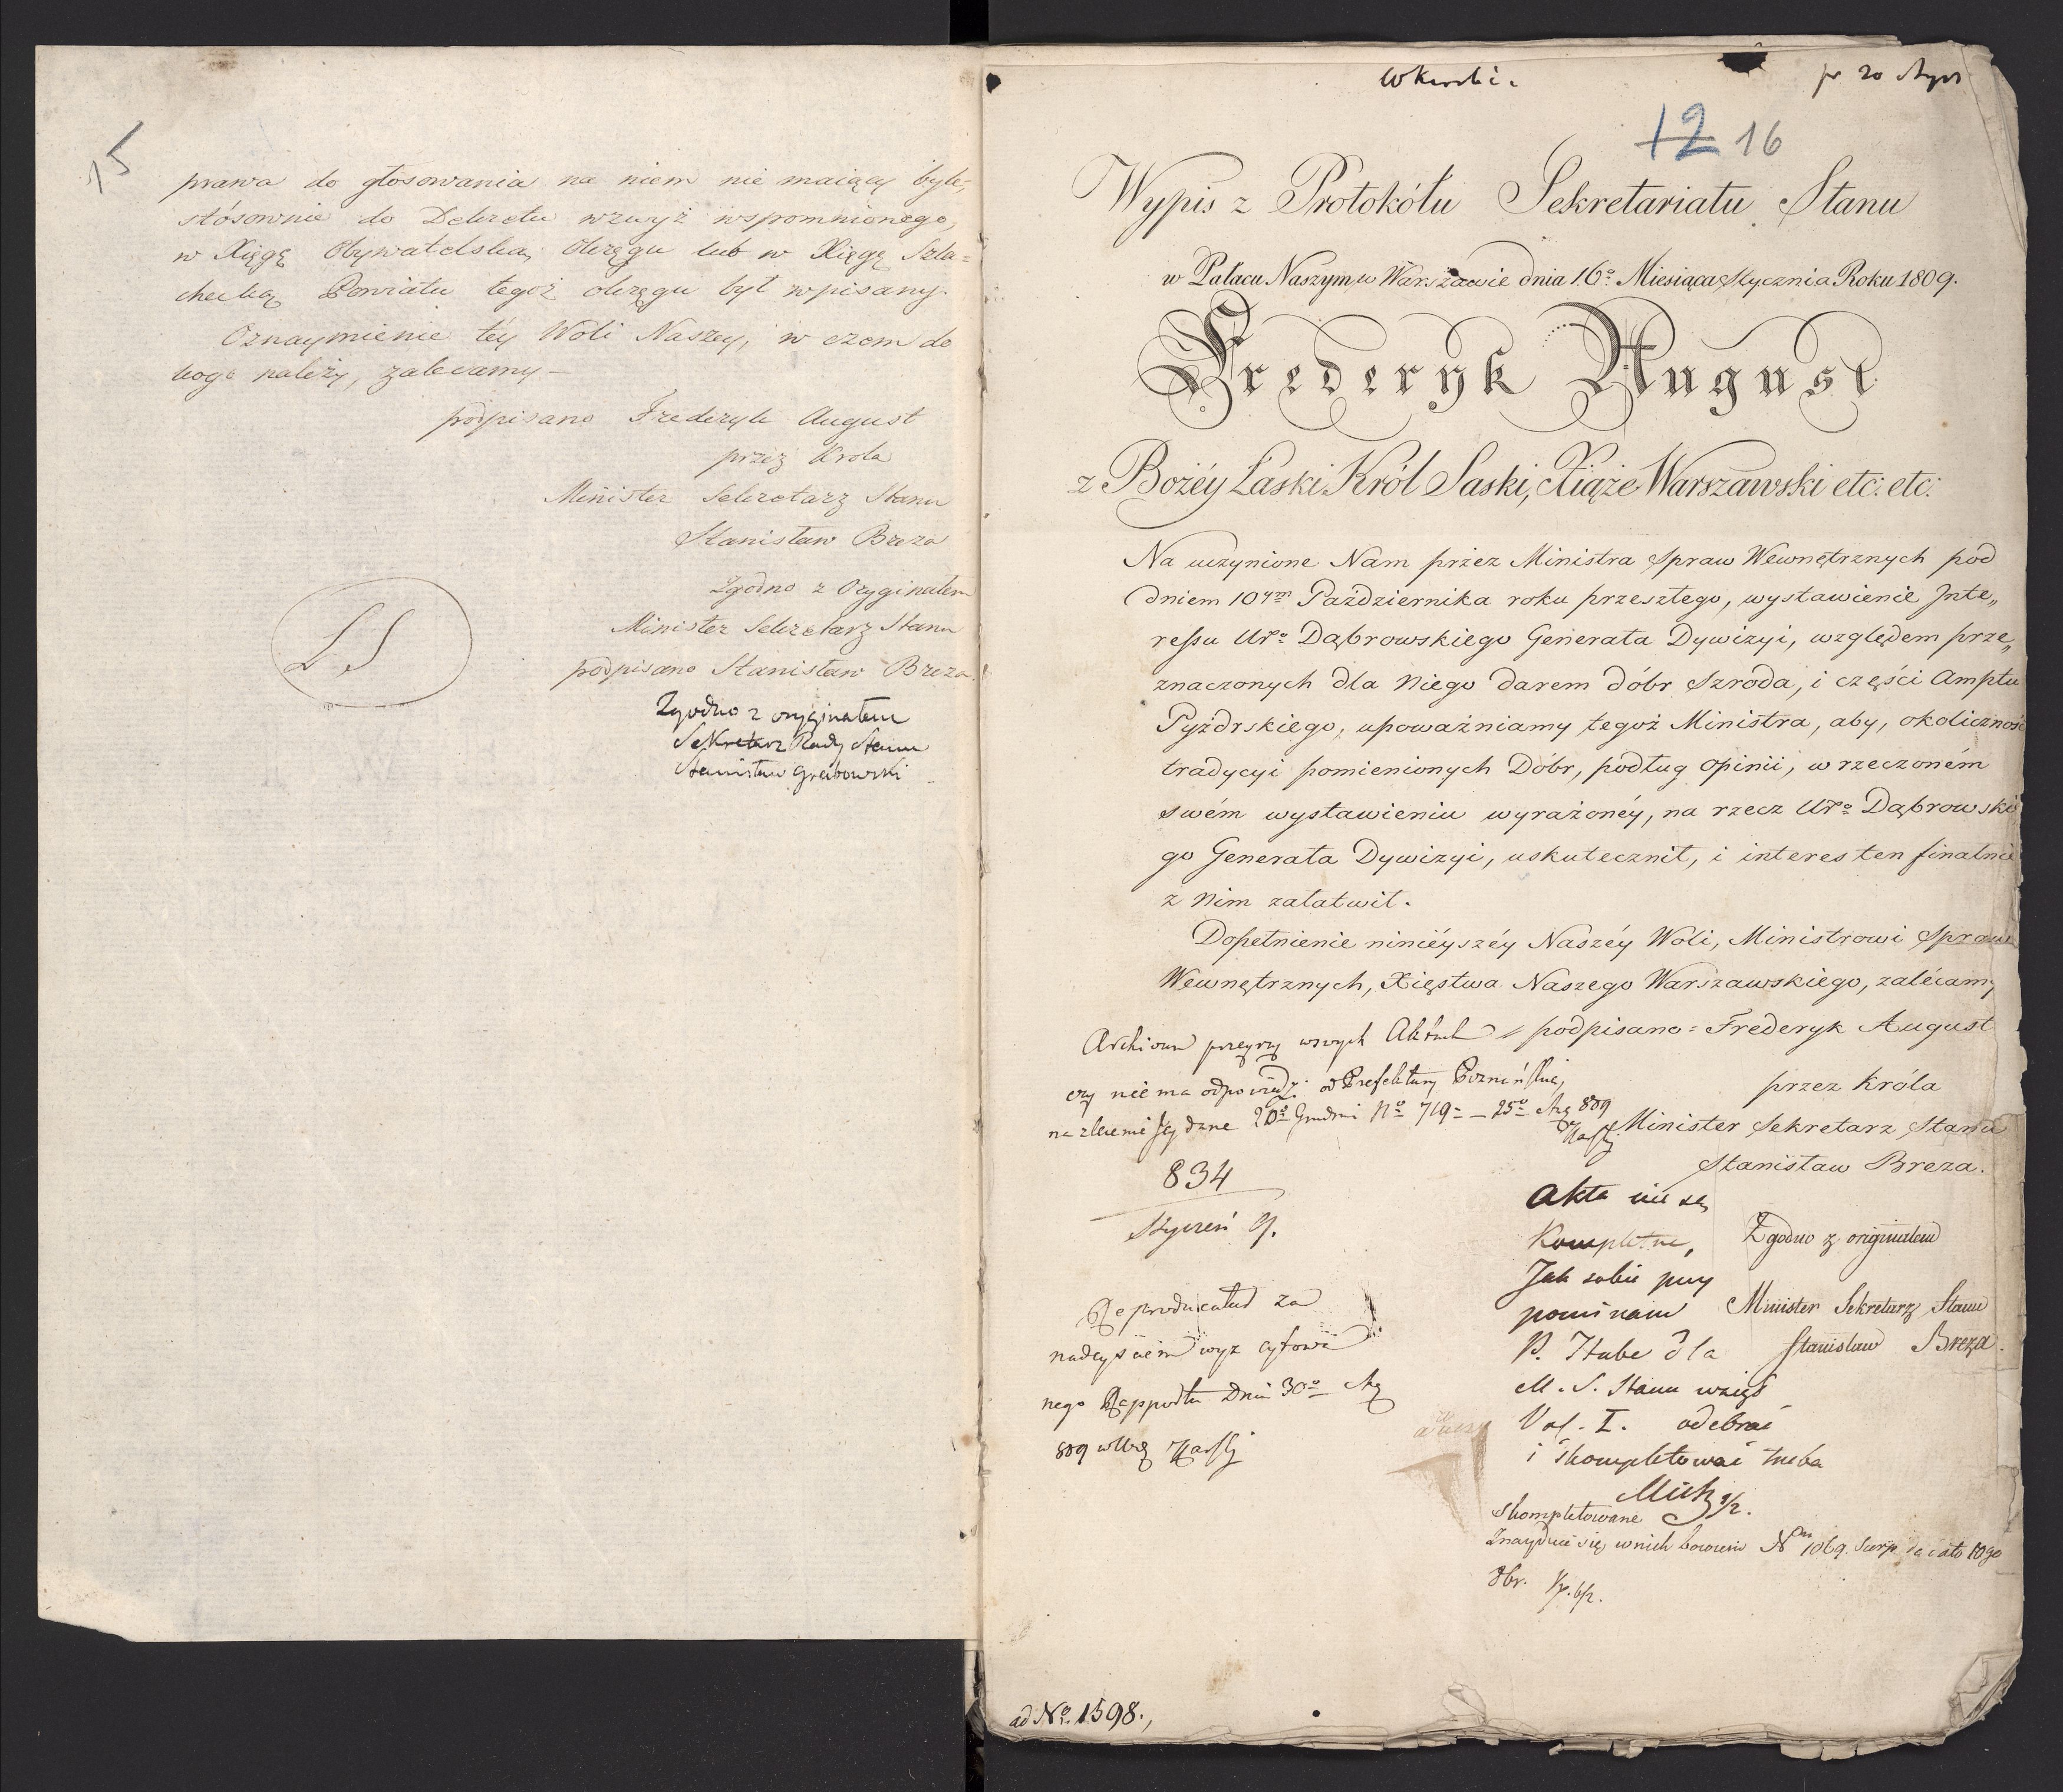 15
prawa do głosowania na niem nie maiący byle,
stósownie do Dekretu wzwyż wspomnionego,
w Xięgę Obywatelską Okręgu lub w Xięgę Szla=
checką Powiatu tegoż okręgu był wpisany.
Oznaymienie téy Woli Naszey, w czem do
kogo należy, zalecamy —
podpisano Frederyk August
przez Krola
Minister Sekretarz Stanu
Stanisław Breza
Zgodno z Oryginałem
Minister Sekretarz Stanu
LS
podpisano Stanisław Breza.
Zgodno z oryginałem
Sekretarz Rady Stanu
Stanisław Grabowski
pr 20
12 16
Wypis z Protokółu Sekretariatu Stanu
w Pałacu Naszym w Warszawie dnia 16º Miesiąca Stycznia Roku 1809.
Frederyk August
z Bożéy Łaski Król Saski, Xiąże Warszawski etc: etc:
Na uczynione Nam przez Ministra Spraw Wewnętrznych pod
dniem 10ym Października roku przeszłego, wystawienie Inte„
ressu Urº Dąbrowskiego Generała Dywizyi, względem prze„
znaczonych dla Niego darem dóbr Szroda, i części Amptu
Pyzdrskiego, upoważniamy tegoż Ministra, aby, okoliczność
tradycyi pomienionych Dóbr, podług opinii, w rzeczoném
swém wystawieniu wyrażonéy, na rzecz Urº Dąbrowskie
go Generała Dywizyi, uskutecznił, i interes ten finalnie
z Nim załatwił.
Dopełnienie ninieyszéy Naszéy Woli, Ministrowi Spraw
Wewnętrznych, Xięstwa Naszego Warszawskiego, zalécamy
podpisano = Frederyk August
przez Króla
Minister Sekretarz Stanu
Stanisław Breza.
Zgodno z originałem
Minister Sekretarz Stanu
Stanisław Breza.
Archivum przeyrzy w swych Aktach
czy nie ma odpowiedzi od Prefektury Poznańskiey
na zlecenie Jey dane 20º Grudnia Nº 719 = — 25º 809
834
Styczeń
Reproducatur za
nadeyściem wyz cytowa
nego Rapportu Dnia 30º
809
Akta nie są
kompletne,
Jak sobie przy
pominam
P. Hube dla
M. S. Stanu wziął
Vol. I. odebrać
i skompletować trzeba
skompletowane
Znayduie się w nich bowiem Nr 1069. Sierp.
8br.
ad Nº 1598.,